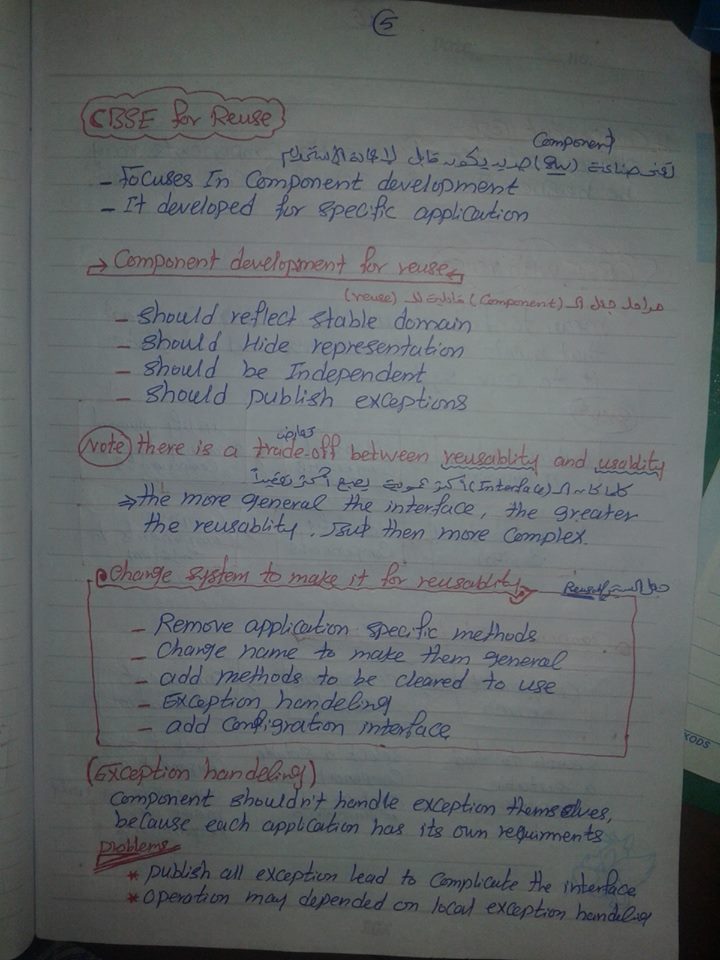 5
CBSE for Reuse
Component
تعني صناعة (SW) جديد يكون قابل لإعادة الاستخدام
- Focuses In Component development
- It developed for specific application
Component development for reuse
مراحل جعل الـ (Component) قابلة للـ (reuse)
- should reflect stable domain
- should Hide representation
- should be Independent
- should publish exceptions
تعارض
Note there is a trade-off between reusablity and usablity
كلما كانت الـ (Interface) أكثر عمومية يصبح أكثر تعقيداً
⇒ the more general the interface, the greater
the reusablity. But then more Complex.
Change system to make it for reusablity
جعل السيستم Reuse
- Remove application specific methods
- Change name to make them general
- add methods to be cleared to use
- Exception handeling
- add Configration interface
(Exception handeling)
Component shouldn't handle exception themselves,
because each application has its own requirments
problems
* publish all exception lead to Complicate the interface
* operation may depended on local exception handeling